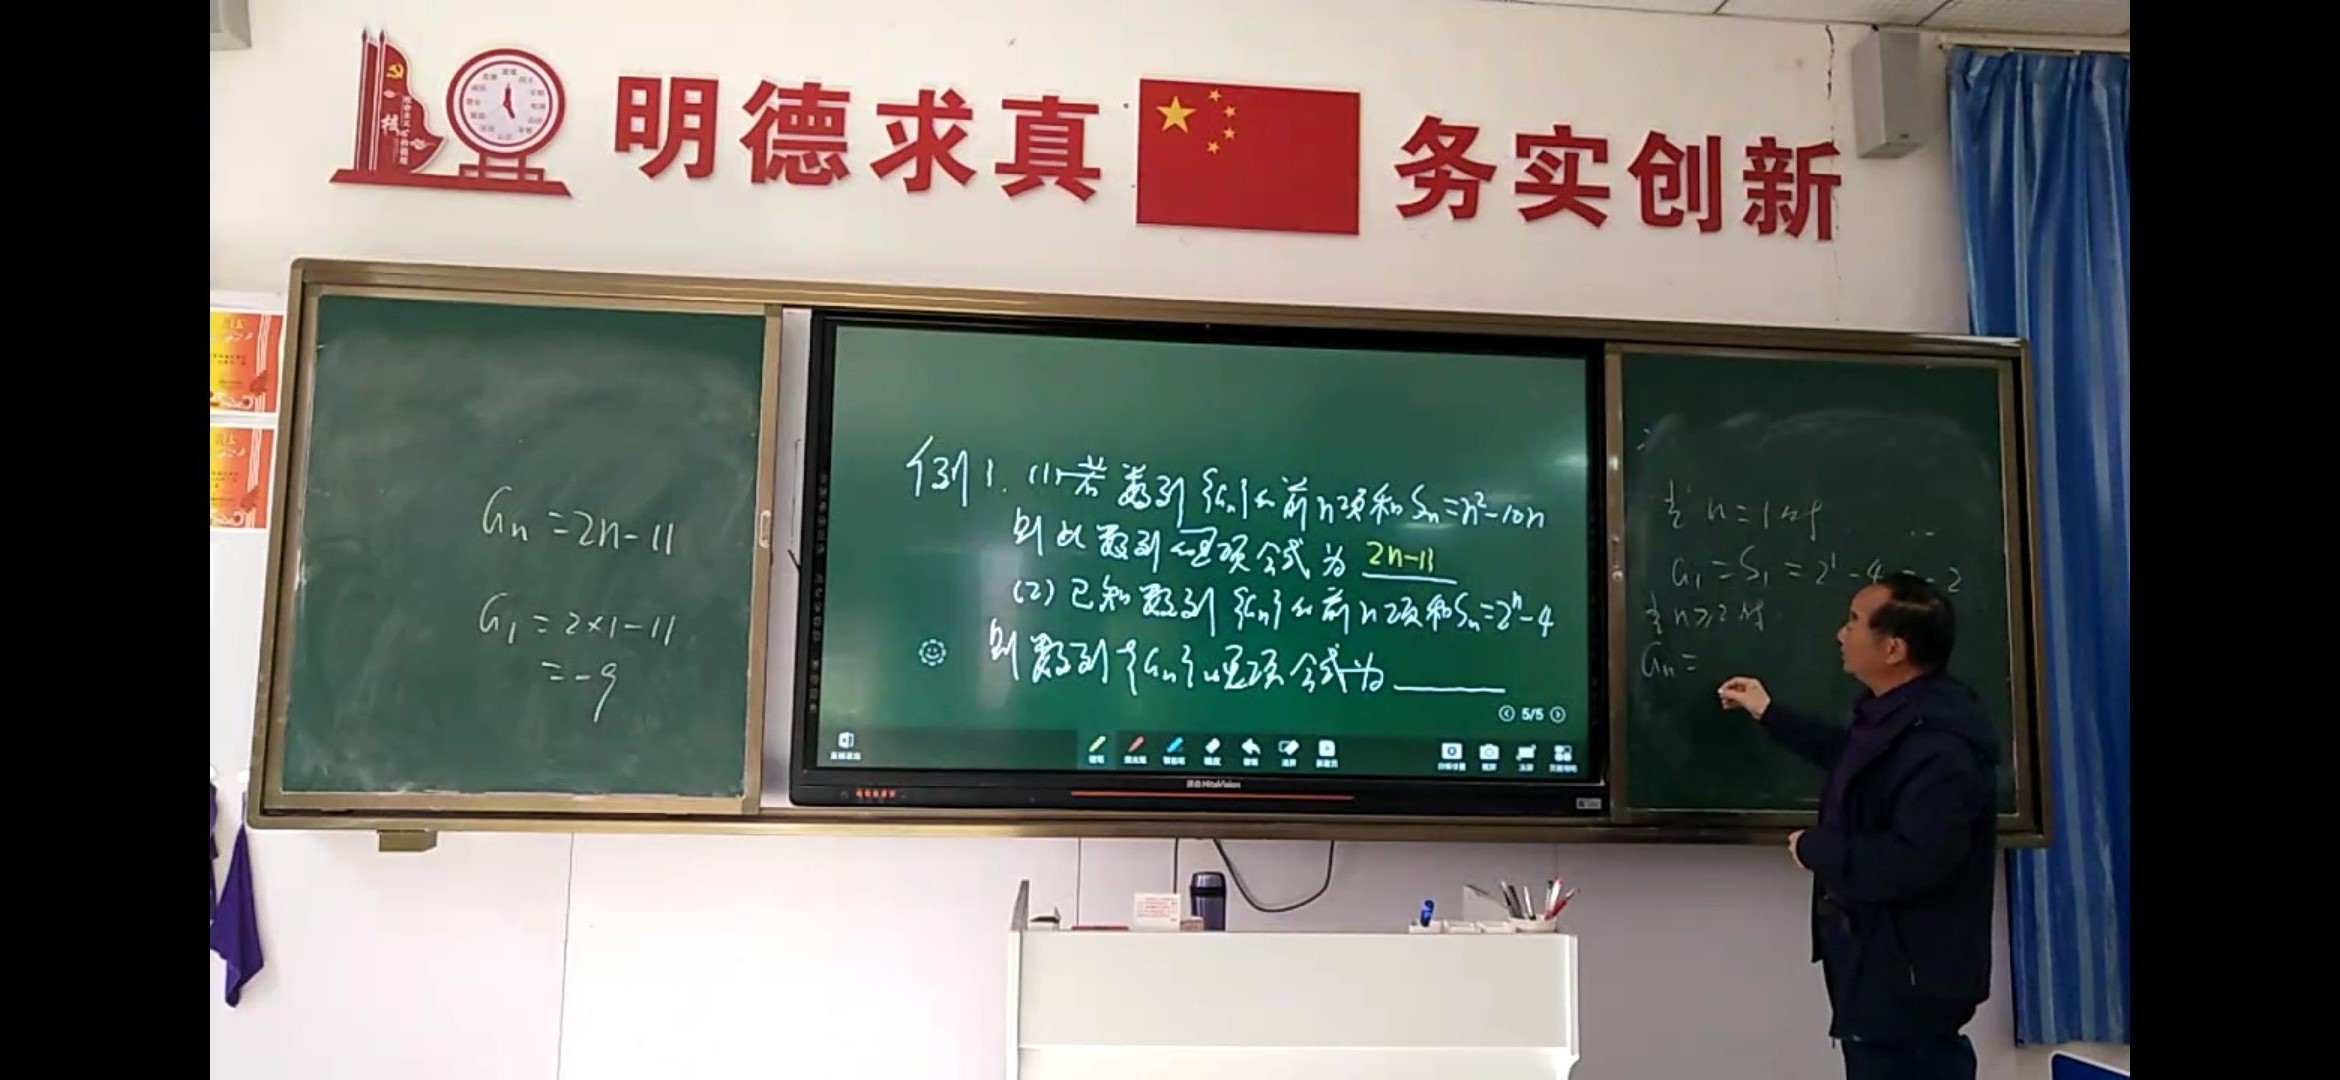 明德求真 务实创新
Gn=2n-11
G1=2×1-11
=-9
例1.(1)若数列{Gn}的前n项和Sn=n²-10n
则此数列的通项公式为 2n-11
(2)已知数列{Gn}的前n项和Sn=2ⁿ-4
则数列{Gn}的通项公式为______
5/5
HiteVision
当n=1时
G1=S1=2¹-4=-2
当n≥2时
Gn=